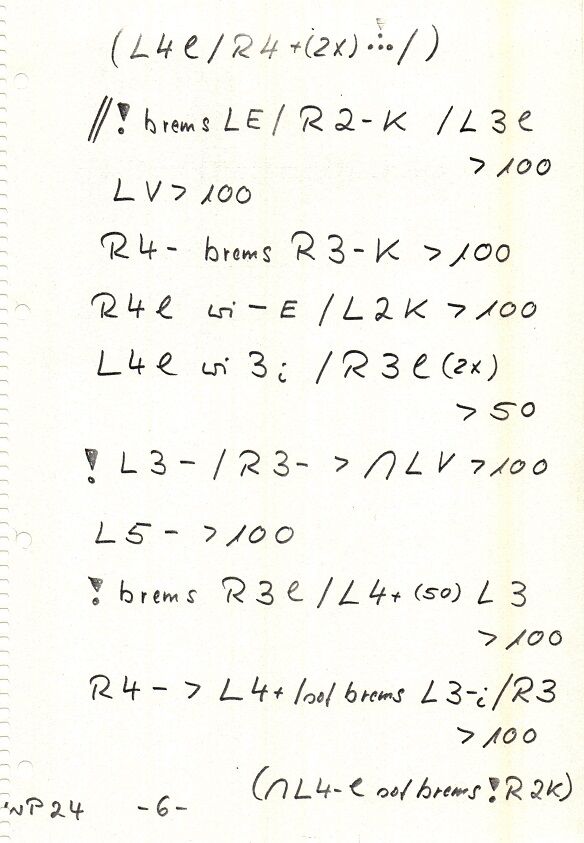 (L4e/R4+(2x) ∴!/)
//! brems LE/R2-K /L3e
>100
LV>100
R4- brems R3-K >100
R4e wi-E /L2K >100
L4e wi 3i /R3e(2x)
>50
! L3-/R3- > ∩LV >100
L5- >100
! brems R3e/L4+ (50) L3
>100
R4- > L4+/sof brems L3-i/R3
>100
(∩L4-e sof brems!R2K)
WP24 -6-